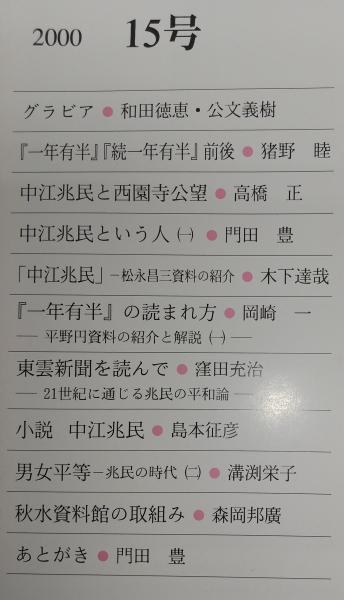 2000 15号
グラビア ● 和田徳恵・公文義樹
『一年有半』『続一年有半』前後 ● 猪野　睦
中江兆民と西園寺公望 ● 高橋　正
中江兆民という人 ㈠ ● 門田　豊
「中江兆民」－松永昌三資料の紹介 ● 木下達哉
『一年有半』の読まれ方 ● 岡崎　一
── 平野円資料の紹介と解説 ㈠ ──
東雲新聞を読んで ● 窪田充治
── 21世紀に通じる兆民の平和論 ──
小説　中江兆民 ● 島本征彦
男女平等－兆民の時代 ㈡ ● 溝渕栄子
秋水資料館の取組み ● 森岡邦廣
あとがき ● 門田　豊